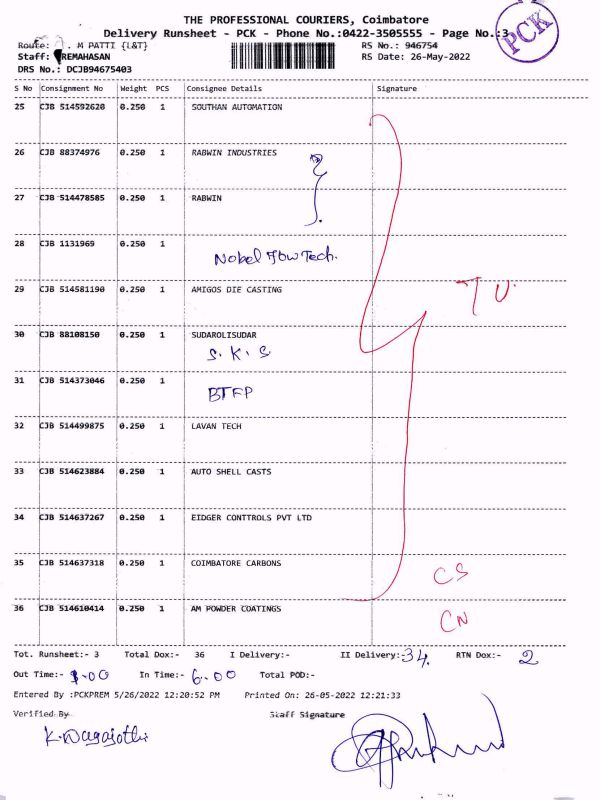 THE PROFESSIONAL COURIERS, Coimbatore
Delivery Runsheet - PCK - Phone No.:0422-3505555 - Page No.:3
PCK
Route: . M PATTI {L&T} RS No.: 946754
Staff: REMAHASAN RS Date: 26-May-2022
DRS No.: DCJB94675403
S No Consignment No Weight PCS Consignee Details Signature
25 CJB 514592620 0.250 1 SOUTHAN AUTOMATION
26 CJB 88374976 0.250 1 RABWIN INDUSTRIES
27 CJB 514478585 0.250 1 RABWIN
28 CJB 1131969 0.250 1
Nobel Flow Tech.
29 CJB 514581190 0.250 1 AMIGOS DIE CASTING
30 CJB 88108150 0.250 1 SUDAROLISUDAR
S. K. S
31 CJB 514373046 0.250 1
BTFP
32 CJB 514499875 0.250 1 LAVAN TECH
33 CJB 514623884 0.250 1 AUTO SHELL CASTS
34 CJB 514637267 0.250 1 EIDGER CONTTROLS PVT LTD
35 CJB 514637318 0.250 1 COIMBATORE CARBONS
CS
36 CJB 514610414 0.250 1 AM POWDER COATINGS
CN
Tot. Runsheet:- 3 Total Dox:- 36 I Delivery:- II Delivery:- 34. RTN Dox:- 2
Out Time:- 1.00 In Time:- 6.00 Total POD:-
Entered By :PCKPREM 5/26/2022 12:20:52 PM Printed On: 26-05-2022 12:21:33
Verified By Staff Signature